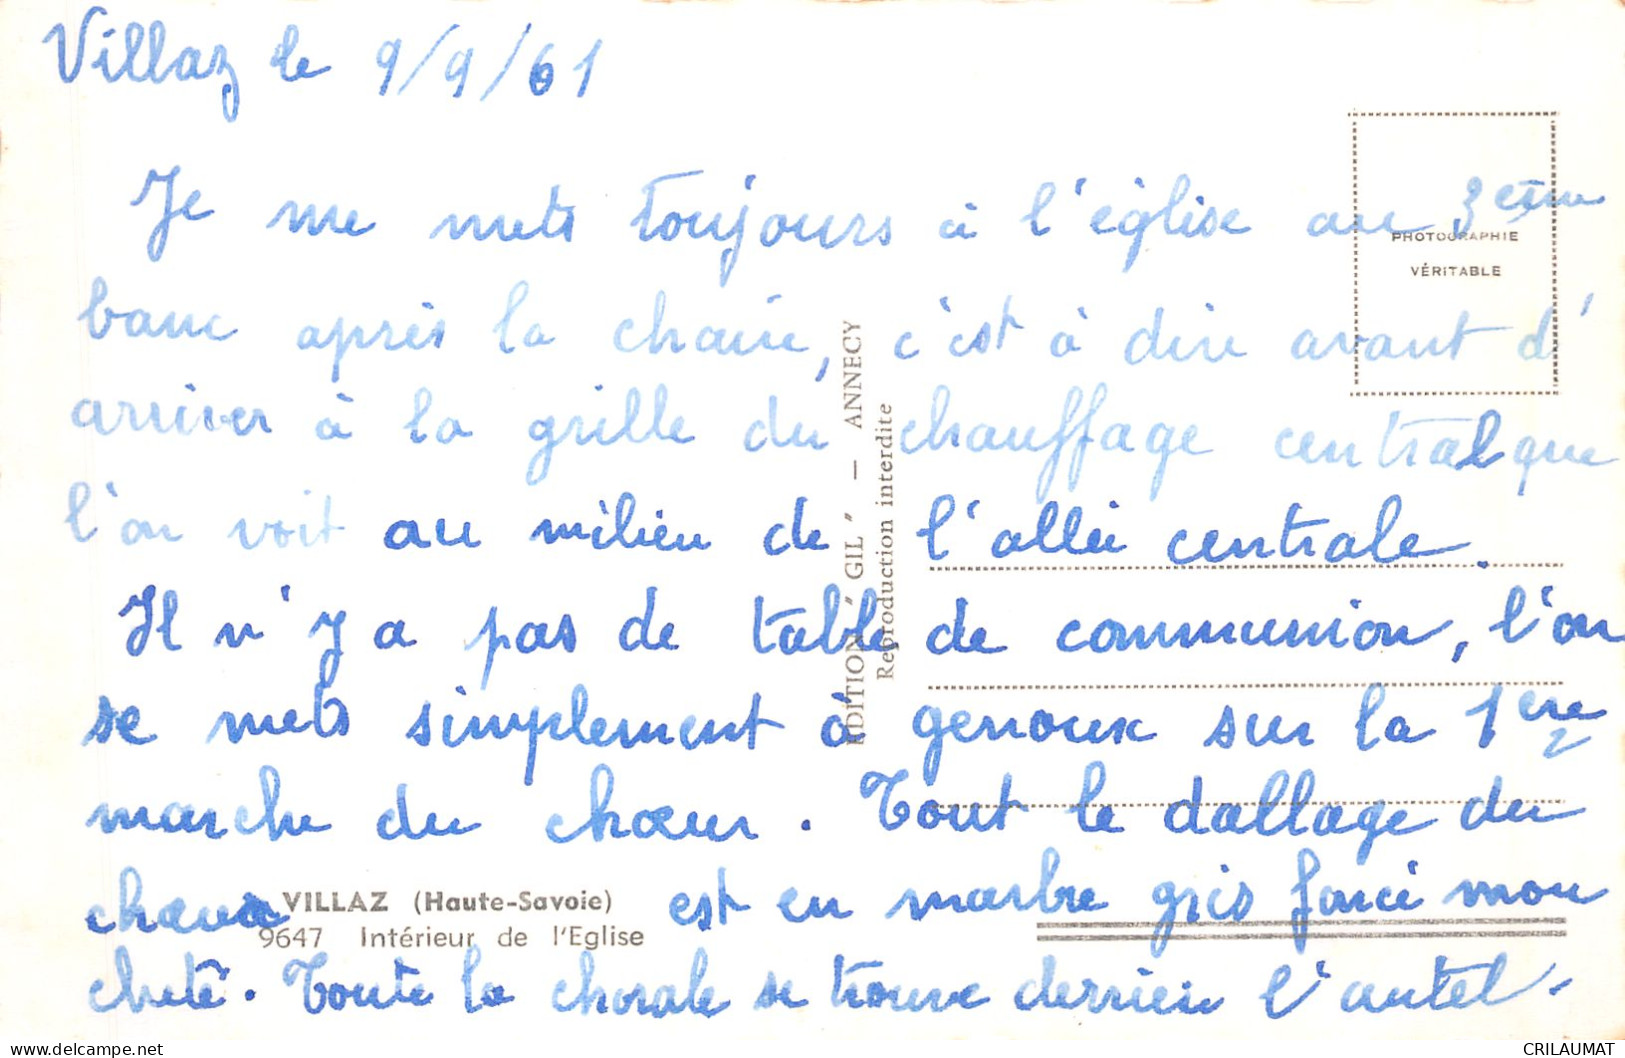 Villaz le 9/9/61
Je me mets toujours à l'église au 3ème
banc après la chaire, c'est à dire avant d'
arriver à la grille du chauffage central que
l'on voit au milieu de l'allée centrale.
Il n'y a pas de table de communion, l'on
se mets simplement à genoux sur la 1ère
marche du chœur. Tout le dallage du
chœur est en marbre gris foncé mou
cheté. Toute la chorale se trouve derrière l'autel.
PHOTOGRAPHIE
VÉRITABLE
EDITION "GIL" — ANNECY
Reproduction interdite
VILLAZ (Haute-Savoie)
9647 Intérieur de l'Eglise
delcampe.net
CRILAUMAT